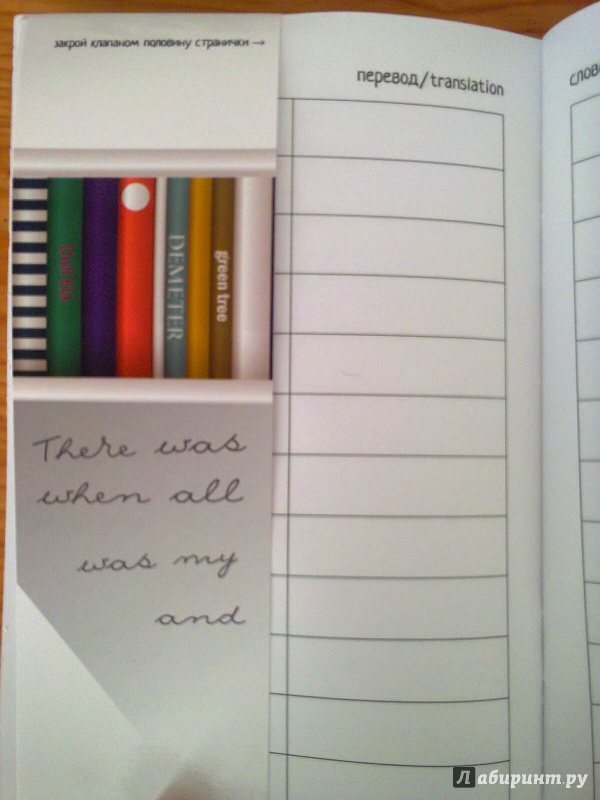 закрой клапаном половину странички →
перевод/translation
слов
DEMETER
green tree
There was
when all
was my
and
Лабиринт.ру